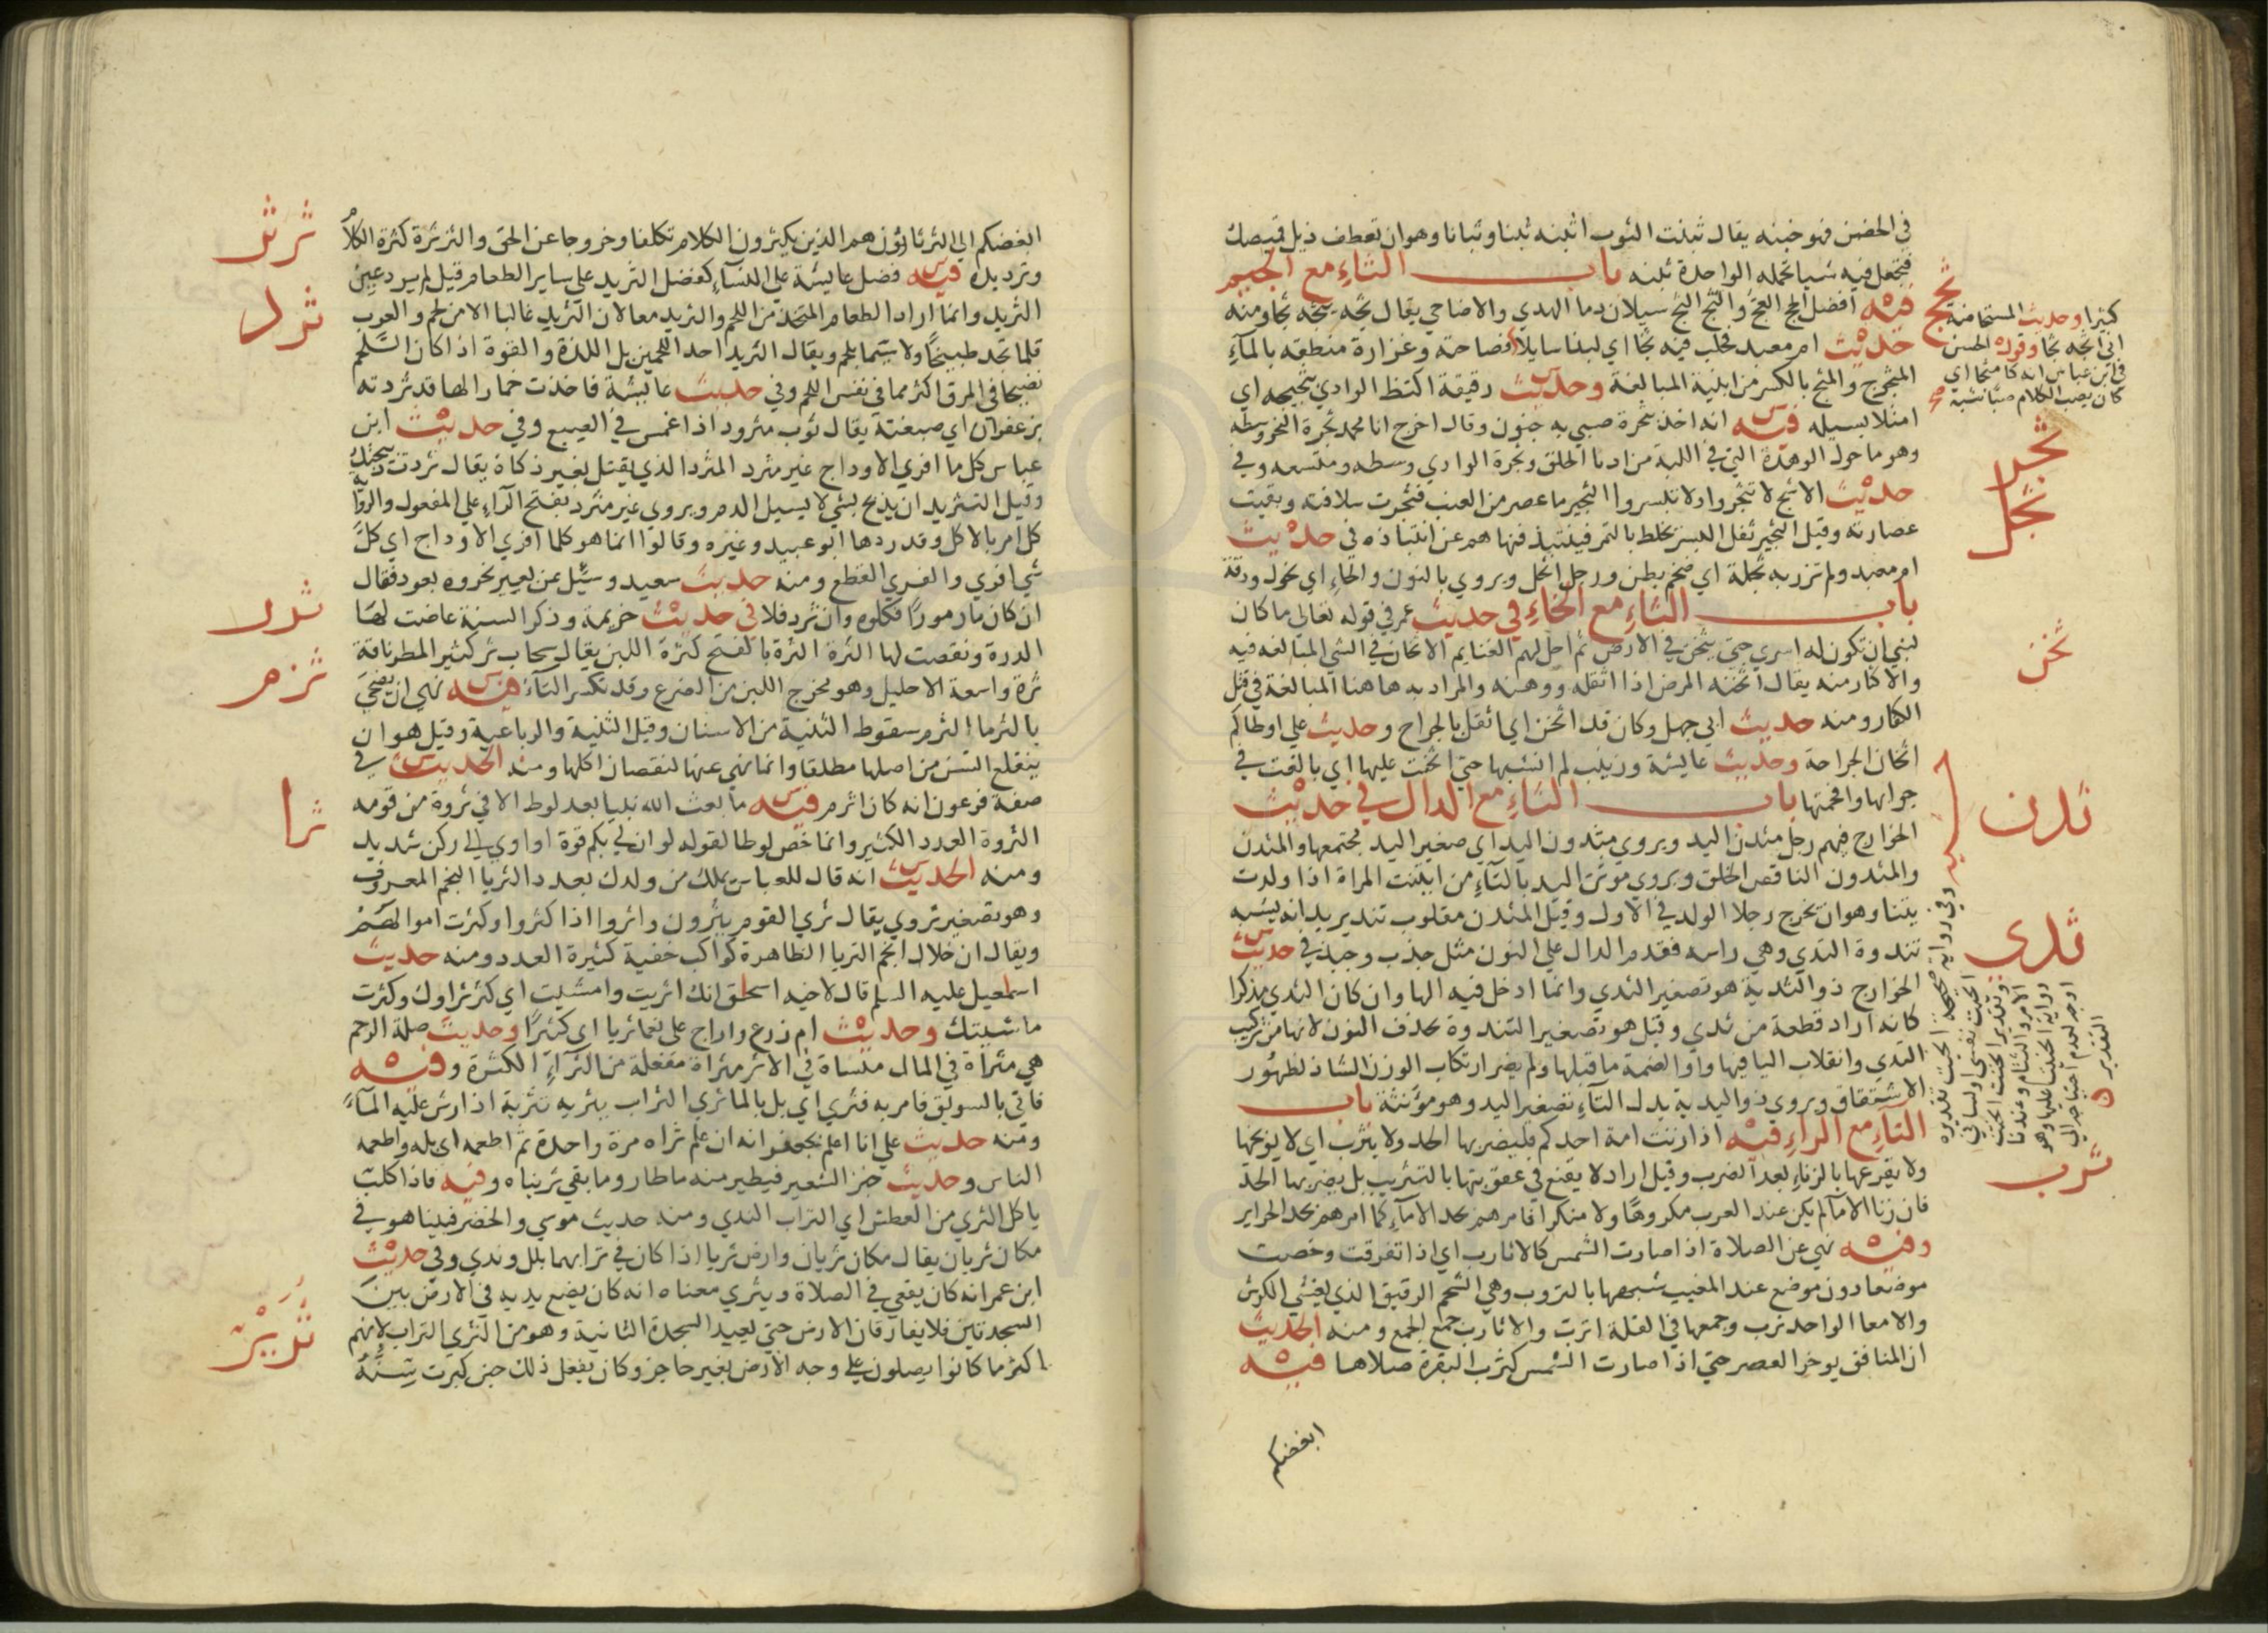 في الحضن فهو خبنه يقال ثبنت الثوب اثبنه ثبنا وثبانا وهو ان تعطف ذيل قميصك
فتجعل فيه شيا تحمله الواحدة ثبنه باب الثاء مع الجيم
فيه افضل الحج العج والثج الثج سيلان دما الهدي والاضاحي يقال ثجه يثجه ثجا ومنه
حديث ام معبد فحلب فيه ثجا اي لبنا سايلا
المثجوج والمثج بالكسر من ابنية المبالغة وحديث رقيقة اكتظ الوادي بثجيجه اي
امتلا بسيله فيه انه اخذ بثجرة صبي به جنون وقال اخرج انا محمد ثجرة النحر وسطه
وهو ما حول الوهدة التي في اللبة من ادنا الحلق وثجرة الوادي وسطه ومتسعه وفي
حديث الاشج لا تثجروا ولا تبسروا الثجير ما عصر من العنب فثجرت سلافته وبقيت
عصارته وقيل الثجير ثفل البسر يخلط بالتمر فينتبذ فنهاهم عن انتباذه في حديث
ام معبد ولم تزر به ثجلة اي ضخم بطن ورجل اثجل ويروي بالنون والحاء اي نحول ودقة
باب الثاء مع الخاء في حديث عمر في قوله تعالي ما كان
لنبي ان تكون له اسري حتي يثخن في الارض ثم احل لهم الغنايم الاثخان في الشي المبالغه فيه
والاكثار منه يقال اثخنه المرض اذا اثقله ووهنه والمراد به هاهنا المبالغة في قتل
الكفار ومنه حديث ابي جهل وكان قد اثخن اي اثقل بالجراح وحديث علي اوطاكم
اثخان الجراحة وحديث عايشة وزينب لم انشبها حتي اثخنت عليها اي بالغت في
جوابها وافحمتها باب الثاء مع الدال في حديث
الخوارج فيهم رجل مثدن اليد ويروي مثدون اليد اي صغير اليد مجتمعها والمثدن
والمثدون الناقص الخلق ويروي موتن اليد بالتاء من ايتنت المراة اذا ولدت
يتنا وهو ان تخرج رجلا الولد في الاول وقيل المثدن مقلوب ثند يريد انه يشبه
ثندوة الثدي وهي راسه فقدم الدال علي النون مثل جذب وجبذ في حديث
الخوارج ذو الثدية هو تصغير الثدي وانما ادخل فيه الها وان كان الثدي مذكرا
كانه اراد قطعة من ثدي وقيل هو تصغير الثندوة بحذف النون لانها من تركيب
الثدي وانقلاب اليا فيها واوا لضمة ما قبلها ولم يضر ارتكاب الوزن الشاذ لظهور
الاشتقاق ويروي ذو اليدية بدل الثاء تصغير اليد وهو مؤنثة باب
الثاء مع الراء فيه اذا زنت امة احدكم فليضربها الحد ولا يثرب اي لا يوبخها
ولا يقرعها بالزناء بعد الضرب وقيل اراد لا يقنع في عقوبتها بالتثريب بل يضربها الحد
فان زنا الاما لم يكن عند العرب مكروها ولا منكرا فامرهم بحد الاماء كما امرهم بحد الحراير
وفيه نهي عن الصلاة اذا صارت الشمس كالاثارب اي اذا تفرقت وخصت
موضعا دون موضع عند المغيب شبهها بالثروب وهي الشحم الرقيق الذي يغشي الكرش
والامعا الواحد ثرب وجمعها في القلة اثرب والاثارب جمع الجمع ومنه الحديث
ان المنافق يوخر العصر حتي اذا صارت الشمس كثرب البقرة صلاها فيه
ابغضكم
ثجج
كثيرا وحديث المستحاضة
اني اثجه ثجا وقول الحسن
في ابن عباس انه كان مثجا اي
كان يصب الكلام صبا
ثجر
ثجل
ثخن
ثدن
ثدي
ثرب
ابغضكم الي الثرثارون هم الذين يكثرون الكلام تكلفا وخروجا عن الحق والثرثرة كثرة الكلام
وترديده فيه فضل عايشة علي النساء كفضل الثريد علي ساير الطعام قيل لم يرد عين
الثريد وانما اراد الطعام المتخذ من اللحم والثريد معا لان الثريد غالبا الا من لحم والعرب
قلما تجد طبيخا ولا سيما بلحم ويقال الثريد احد اللحمين بل اللذة والقوة اذا كان اللحم
نضيجا في المرق اكثر مما في نفس اللحم وفي حديث عايشة فاخذت خمارا لها قد ثردته
بزعفران اي صبغته يقال ثوب مثرود اذا غمس في الصبغ وفي حديث ابن
عباس كل ما افري الاوداج غير مثرد المثرد الذي يقتل بغير ذكاة يقال ثردت ذبيحتك
وقيل التثريد ان يذبح بشي لا يسيل الدم ويروي غير مثرد بفتح الراء علي المفعول والرواية
كل امر بالاكل وقد ردها ابو عبيد وغيره وقالوا انما هو كلما افري الاوداج اي كل
شي افري والفري القطع ومنه حديث سعيد وسئل عن بعير نحروه بعود فقال
ان كان مار مورا فكلوه وان ثرد فلا في حديث خزيمة وذكر السنة غاضت لها
الدرة ونقصت لها الثرة الثرة بالفتح كثرة اللبن يقال سحاب ثر كثير المطر وناقة
ثرة واسعة الاحليل وهو مخرج اللبن من الضرع وقد تكسر الثاء فيه نهي ان يضحي
بالثرما الثرم سقوط الثنية من الاسنان وقيل الثنية والرباعية وقيل هو ان
ينقلع السن من اصلها مطلقا وانما نهي عنها لنقصان اكلها ومنه الحديث في
صفة فرعون انه كان اثرم فيه ما بعث الله نبيا بعد لوط الا في ثروة من قومه
الثروة العدد الكثير وانما خص لوطا لقوله لو ان لي بكم قوة او اوي الي ركن شديد
ومنه الحديث انه قال للعباس يملك من ولدك بعدد الثريا النجم المعروف
وهو تصغير ثروي يقال ثري القوم يثرون واثروا اذا كثروا وكثرت اموالهم
ويقال ان خلال انجم الثريا الظاهرة كواكب خفية كثيرة العدد ومنه حديث
اسمعيل عليه السلم قال لاخيه اسحق انك اثريت وامشيت اي كثر ثراوك وكثرت
ماشيتك وحديث ام زرع واراح علي نعما ثريا اي كثيرا وحديث صلة الرحم
هي مثراة في المال منساة في الاثر مثراة مفعلة من الثراء الكثرة وفيه
فاتي بالسويق فامر به فثري اي بل بالما ثري التراب يثريه تثرية اذا رش عليه الماء
ومنه حديث علي انا اعلم بجعفر انه ان علم ثراه مرة واحدة ثم اطعمه اي بله واطعمه
الناس وحديث خبز الشعير فيطير منه ما طار وما بقي ثريناه وفيه فاذا كلب
ياكل الثري من العطش اي التراب الندي ومنه حديث موسي والخضر فبينا هو في
مكان ثريان يقال مكان ثريان وارض ثريا اذا كان في ترابهما بلل وندي وفي حديث
ابن عمر انه كان يقعي في الصلاة ويثري معناه انه كان يضع يديه في الارض بين
السجدتين فلا يفارقان الارض حتي يعيد السجدة الثانية وهو من الثري التراب لانهم
اكثر ما كانوا يصلون علي وجه الارض بغير حاجز وكان يفعل ذلك حين كبرت سنه
ثرثر
ثرد
ثرر
ثرم
ثرا
ثرير